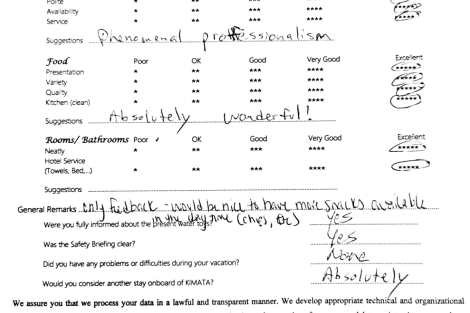 Polite
Availability * ** *** **** *****
Service * ** *** **** *****
Suggestions Phenomenal professionalism
Food Poor OK Good Very Good Excellent
Presentation * ** *** **** *****
Variety * ** *** **** *****
Quarty * ** *** **** *****
Kitchen (clean) * ** *** **** *****
Suggestions Absolutely wonderful!
Rooms/ Bathrooms Poor OK Good Very Good Excellent
Neatly * ** *** **** *****
Hotel Service
(Towels, Bed,..) * ** *** **** *****
Suggestions
General Remarks only feedback - would be nice to have more snacks available
in the day time (chips, etc)
Were you fully informed about the present water toys? Yes
Was the Safety Briefing clear? Yes
Did you have any problems or difficulties during your vacation? None
Would you consider another stay onboard of KIMATA? Absolutely
We assure you that we process your data in a lawful and transparent manner. We develop appropriate technical and organizational